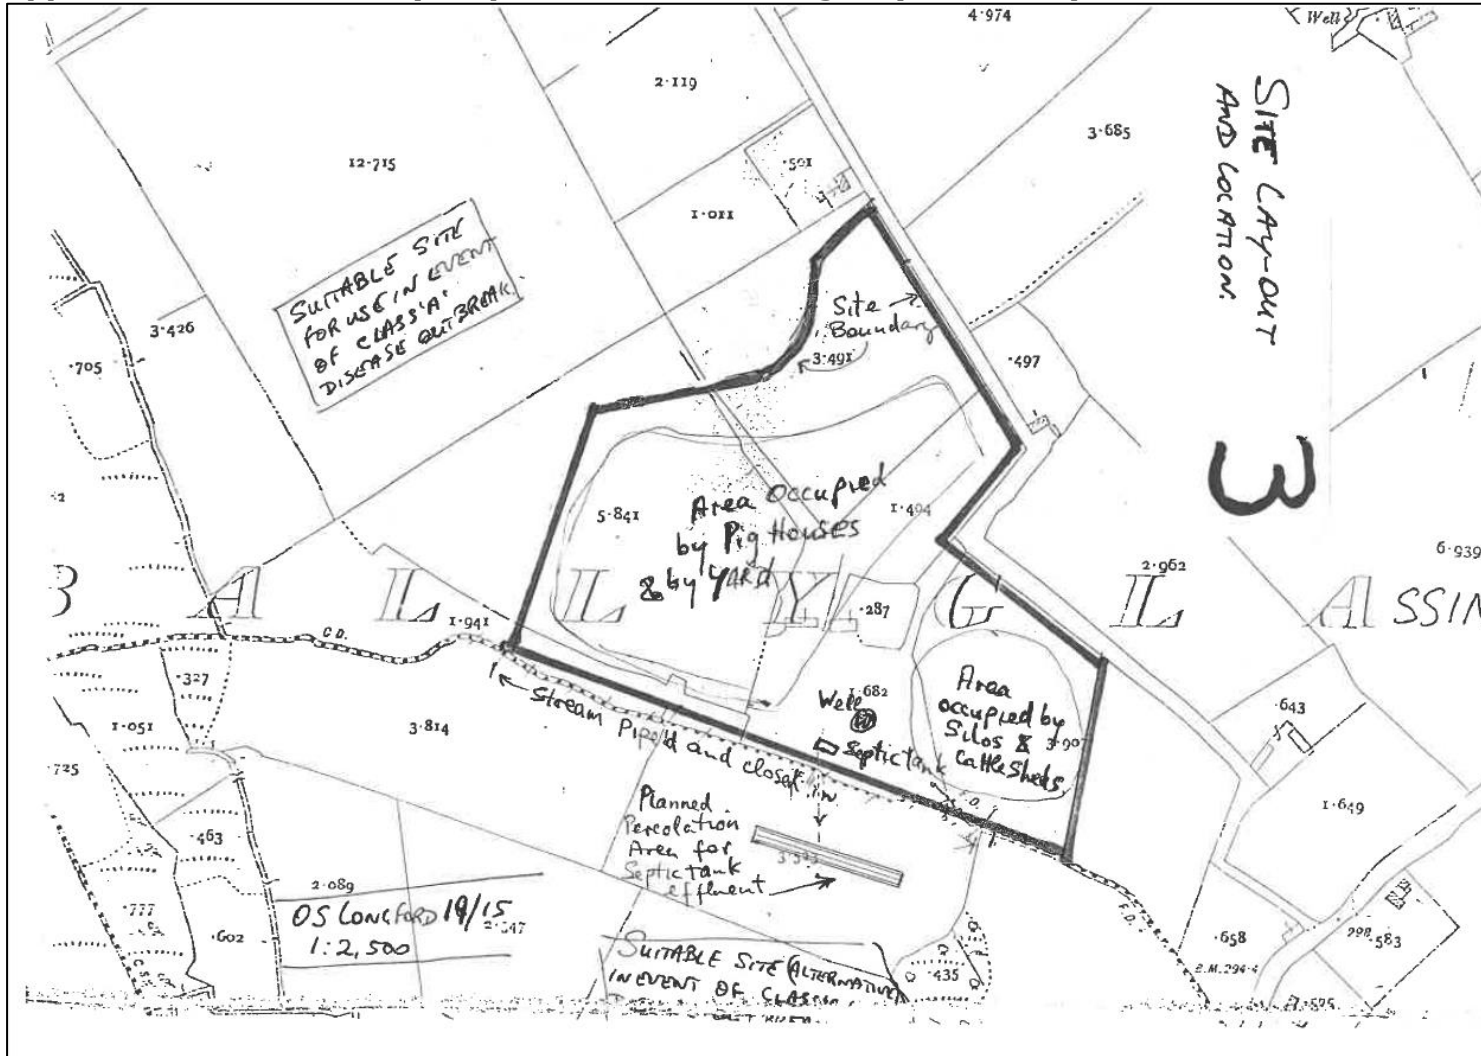 Well
4·974
2·119
3·685
12·715
·501
1·011
SITE LAY-OUT
AND LOCATION.
3
SUITABLE SITE
FOR USE IN EVENT
OF CLASS 'A'
DISEASE OUTBREAK.
3·426
·705
Site
Boundary
3·491
·497
5·841
Area Occupied
by Pig Houses
& by YARD
1·494
2·962
6·939
BALLYGLASSIN
·287
C.D.
1·941
·327
1·051
3·814
·725
Stream Piped and closed in
Well
1·682
Septic tank
Area
occupied by
Silos &
Cattle Sheds
3·907
·643
1·649
Planned
Percolation
Area for
Septic tank
effluent
·463
2·089
·777
·602
OS LONGFORD 19/15
1:2,500
SUITABLE SITE (ALTERNATIVE)
IN EVENT OF CLASS
·435
F.D.
·658
298
·583
B.M.294·4